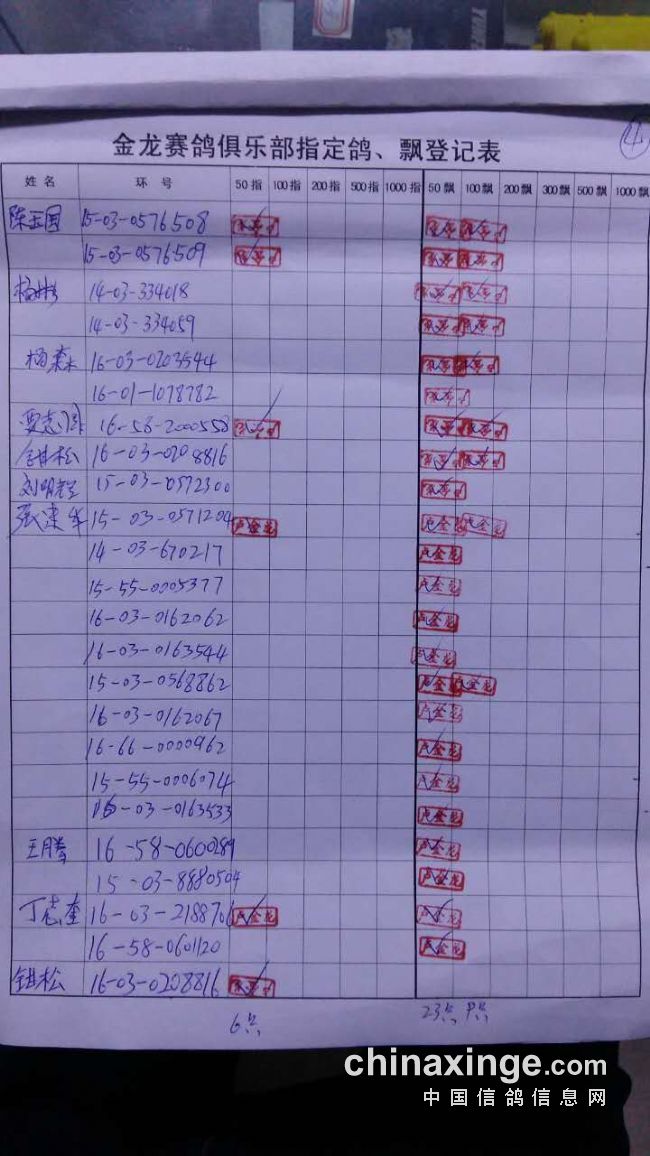 ④
金龙赛鸽俱乐部指定鸽、飘登记表
姓名 环号 50指 100指 200指 500指 1000指 50飘 100飘 200飘 300飘 500飘 1000飘
陈玉国 15-03-0576508
15-03-0576509
杨彬 14-03-334018
14-03-334059
杨森 16-03-0203544
16-01-1078782
贾志国 16-58-2000558
钳松 16-03-0208816
刘明 15-03-0572300
张建华 15-03-0571204 卢金龙 卢金龙 卢金龙
14-03-670217 卢金龙
15-55-0005377 卢金龙
16-03-0162062 卢金龙
16-03-0163544 卢金龙
15-03-0568862 卢金龙 卢金龙
16-03-0162067 卢金龙
16-66-0000962 卢金龙
15-55-0006074 卢金龙
16-03-0163533 卢金龙
王腾 16-58-0600289 卢金龙
15-03-8880504 卢金龙
丁志奎 16-03-2188706 卢金龙 卢金龙
16-58-0601120 卢金龙
钳松 16-03-0208816
6只 23只 9只
chinaxinge.com
中国信鸽信息网